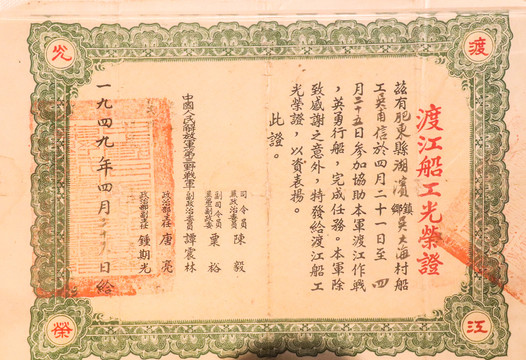 渡江
光榮
渡江船工光榮證
茲有肥東縣湖濱鎮鄉吳大海村船
工吳甫信於四月二十一日至四
月二十五日參加協助本軍渡江作戰
,英勇行船,完成任務。本軍除
致感謝之意外,特發給渡江船工
光榮證,以資表揚。
此證。
中國人民解放軍第三野戰軍
司令員兼政治委員 陳毅
副司令員兼第二副政委 粟裕
副政治委員 譚震林
政治部主任 唐亮
政治部副主任 鍾期光
一九四九年四月二十九日給